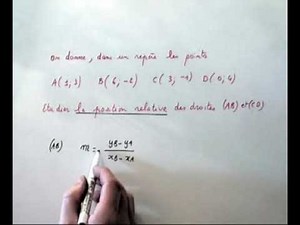 On donne, dans un repère les points
A(1;3) B(6;-2) C(3;-1) D(0;4)
Etudier la position relative des droites (AB) et (CD)
(AB) m = yB-yA
xB-xA